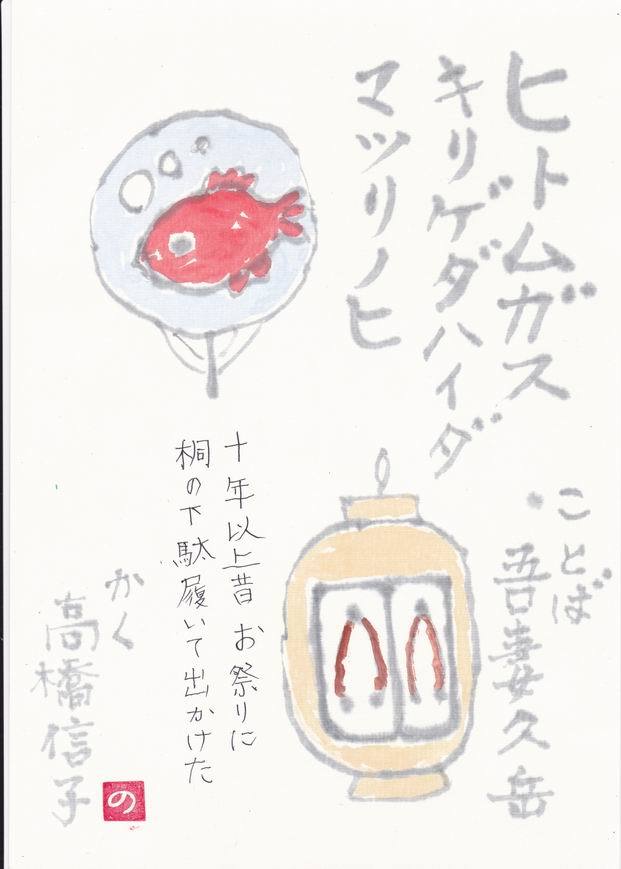 ヒトムガス
キリゲダハイダ
マツリノヒ
ことば
吾妻久岳
十年以上昔 お祭りに
桐の下駄履いて出かけた
かく
高橋信子
の